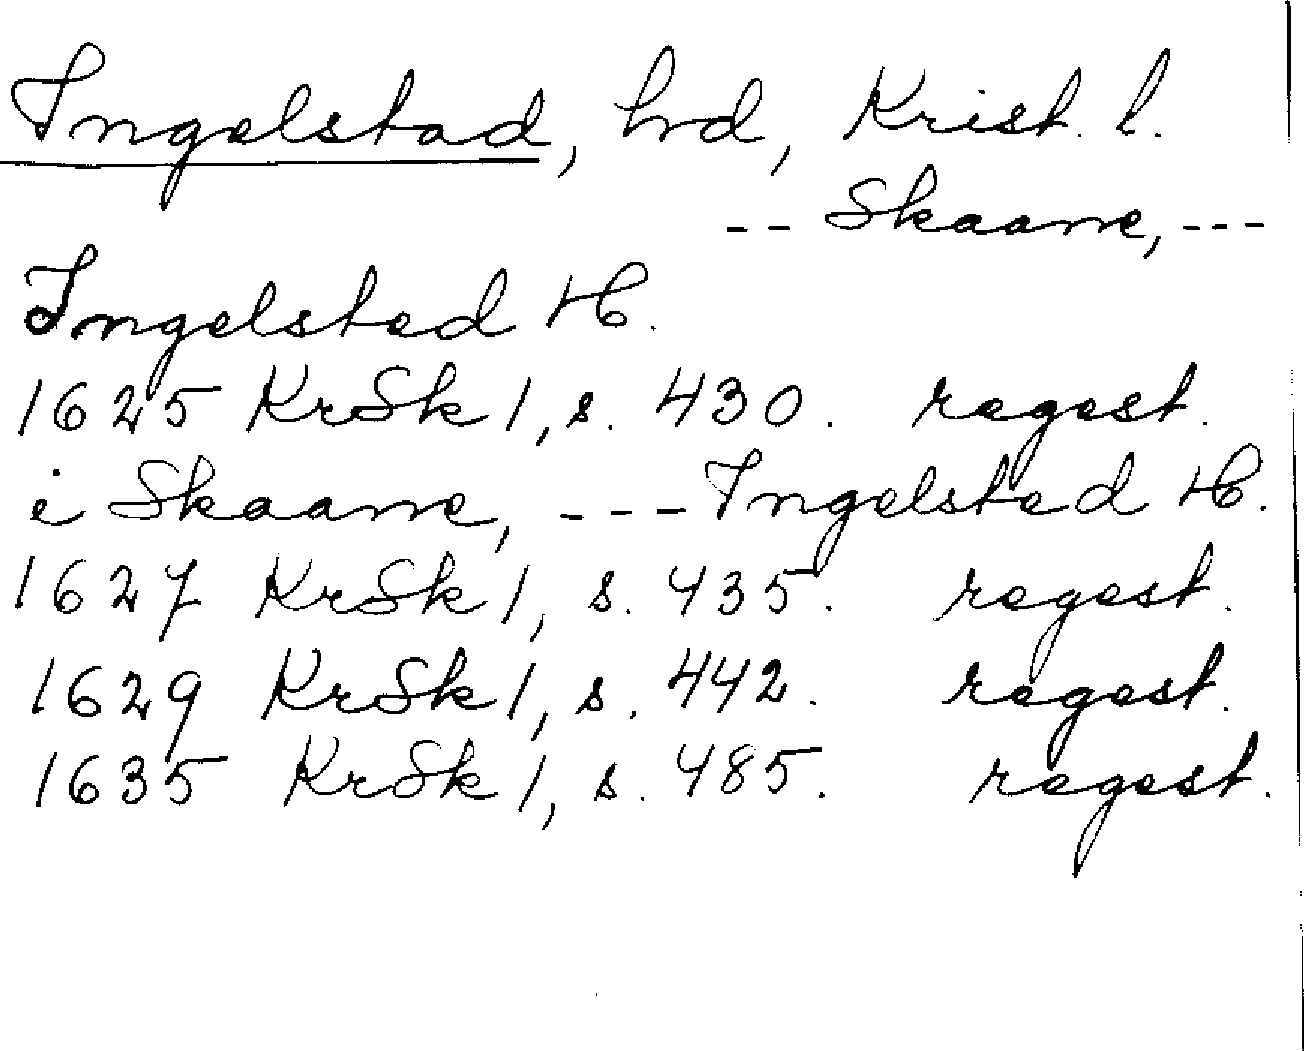 Ingelstad, hd, Krist. l.
-- Skaane, ---
Ingelsted H.
1625 KrSk 1, s. 430. regest.
i Skaane, --- Ingelsted H.
1627 KrSk 1, s. 435. regest.
1629 KrSk 1, s. 442. regest.
1635 KrSk 1, s. 485. regest.